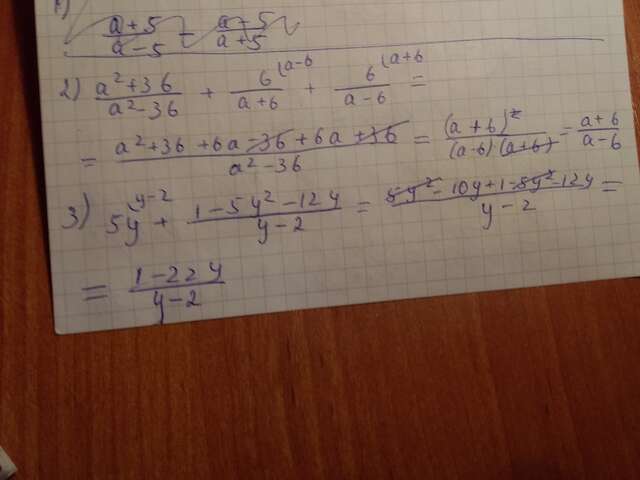 1)
(a+5)/(a-5) - (a+5)/(a+5)
2) (a²+36)/(a²-36) + 6/(a+6) (a-6 + 6/(a-6) (a+6 =
= (a²+36+6a-36+6a+36)/(a²-36) = (a+6)²/((a-6)(a+6)) = (a+6)/(a-6)
3) 5y y-2 + (1-5y²-12y)/(y-2) = (5y²-10y+1-5y²-12y)/(y-2) =
= (1-22y)/(y-2)